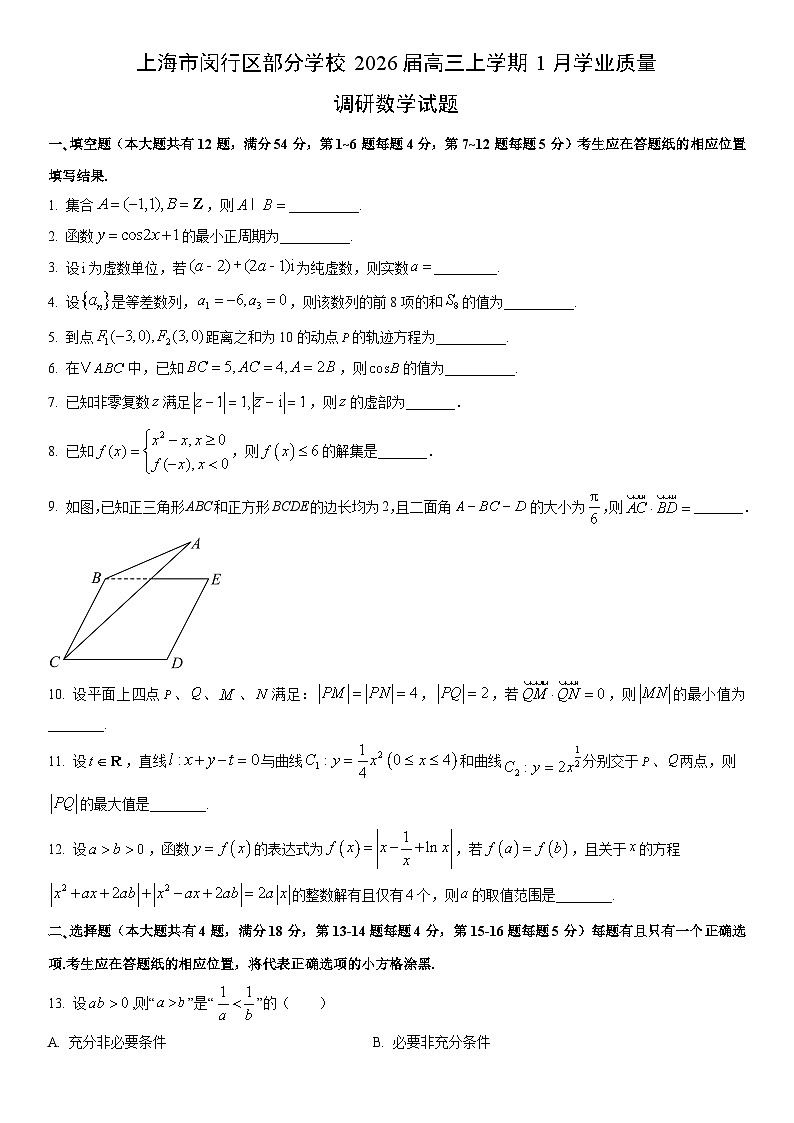 上海市闵行区部分学校 2026 届高三上学期 1 月学业质量
调研数学试题
一、填空题（本大题共有 12 题，满分 54 分，第 1~6 题每题 4 分，第 7~12 题每题 5 分）考生应在答题纸的相应位置
填写结果.
1. 集合 A=(−1,1), B=Z，则 A I B =__________.
2. 函数 y=cos2x+1 的最小正周期为__________.
3. 设 i 为虚数单位，若 (a-2)+(2a-1)i 为纯虚数，则实数 a=_________.
4. 设{aₙ}是等差数列，a₁=−6,a₃=0，则该数列的前 8 项的和 S₈ 的值为__________.
5. 到点 F₁(−3,0),F₂(3,0) 距离之和为 10 的动点 P 的轨迹方程为__________.
6. 在 V ABC 中，已知 BC=5, AC=4, A=2B，则 cosB 的值为__________.
7. 已知非零复数 z 满足 |z−1|=1,|z̅−i|=1，则 z 的虚部为_______.
8. 已知 f(x)={x²−x, x≥0
f(−x), x<0，则 f(x)≤6 的解集是_______.
9. 如图,已知正三角形 ABC 和正方形 BCDE 的边长均为 2,且二面角 A−BC−D 的大小为 π/6,则 AC·BD=_______.
A
B
E
C
D
10. 设平面上四点 P、Q、M、N 满足：|PM|=|PN|=4，|PQ|=2，若 QM·QN=0，则|MN|的最小值为
________.
11. 设 t∈R，直线 l:x+y−t=0 与曲线 C₁:y=1/4 x²(0≤x≤4) 和曲线 C₂:y=2x^(1/2) 分别交于 P、Q 两点，则
|PQ| 的最大值是________.
12. 设 a>b>0，函数 y=f(x) 的表达式为 f(x)=|x−1/x+ln x|，若 f(a)=f(b)，且关于 x 的方程
|x²+ax+2ab|+|x²−ax+2ab|=2a|x| 的整数解有且仅有 4 个，则 a 的取值范围是________.
二、选择题（本大题共有 4 题，满分 18 分，第 13-14 题每题 4 分，第 15-16 题每题 5 分）每题有且只有一个正确选
项.考生应在答题纸的相应位置，将代表正确选项的小方格涂黑.
13. 设 ab>0,则“a>b”是“1/a<1/b”的（ ）
A. 充分非必要条件 B. 必要非充分条件